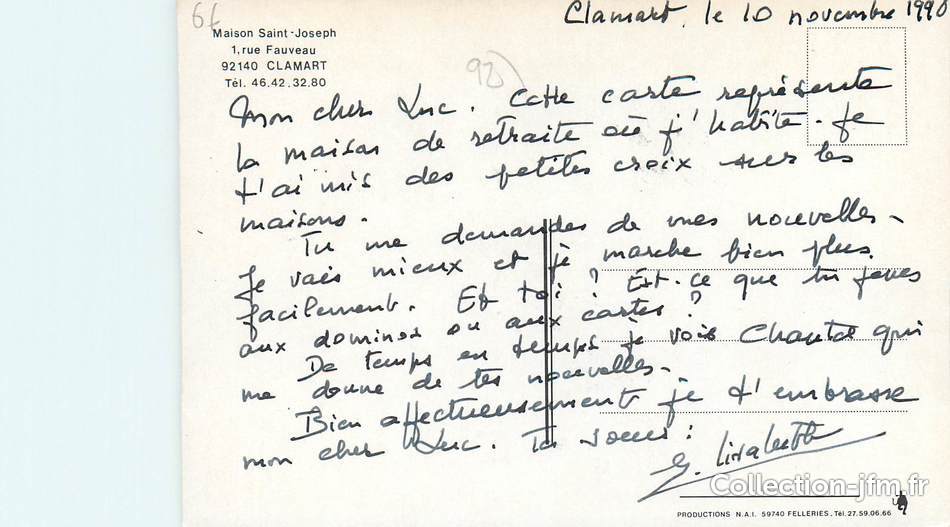 6f
Clamart, le 10 novembre 1990
Maison Saint-Joseph
1, rue Fauveau
92140 CLAMART
Tél. 46.42.32.80
92
Mon cher Luc. Cette carte représente
la maison de retraite où j'habite. Je
t'ai mis des petites croix sur les
maisons.
Tu me demandes de mes nouvelles.
Je vais mieux et je marche bien plus
facilement. Et toi ? Est-ce que tu joues
aux dominos ou aux cartes ?
De temps en temps je vois Chantal qui
me donne de tes nouvelles.
Bien affectueusement je t'embrasse
mon cher Luc. Ta soeur :
Collection-jfm.fr
PRODUCTIONS N.A.I. 59740 FELLERIES. Tél. 27.59.06.66